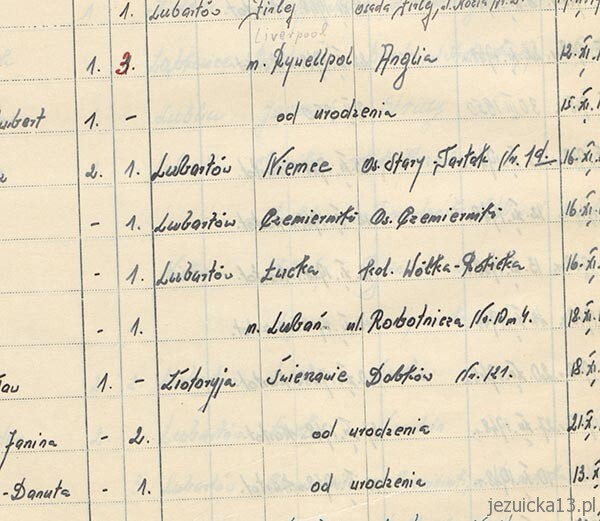 1. Lubartów Firlej osada Firlej,
Liverpool
1. 3. m. Rywellpol Anglia 12.XI.
Hubert 1. - od urodzenia 15.XI.
2. 1. Lubartów Niemce Os. Stary-Tartak Nr. 19 16.XI.
- 1. Lubartów Czemierniki Os. Czemierniki 16.XI.
- 1. Lubartów Łucka kol. Wólka-Rokicka 16.XI.
- 1. m. Lubań ul. Robotnicza Nr. 10 m 4. 18.XI.
1. - Złotoryja Świerzawie Dobków Nr. 121. 18.XI.
Janina - 2. od urodzenia 21.XI.
-Danuta - 1. od urodzenia 13.XI.
jezuicka13.pl